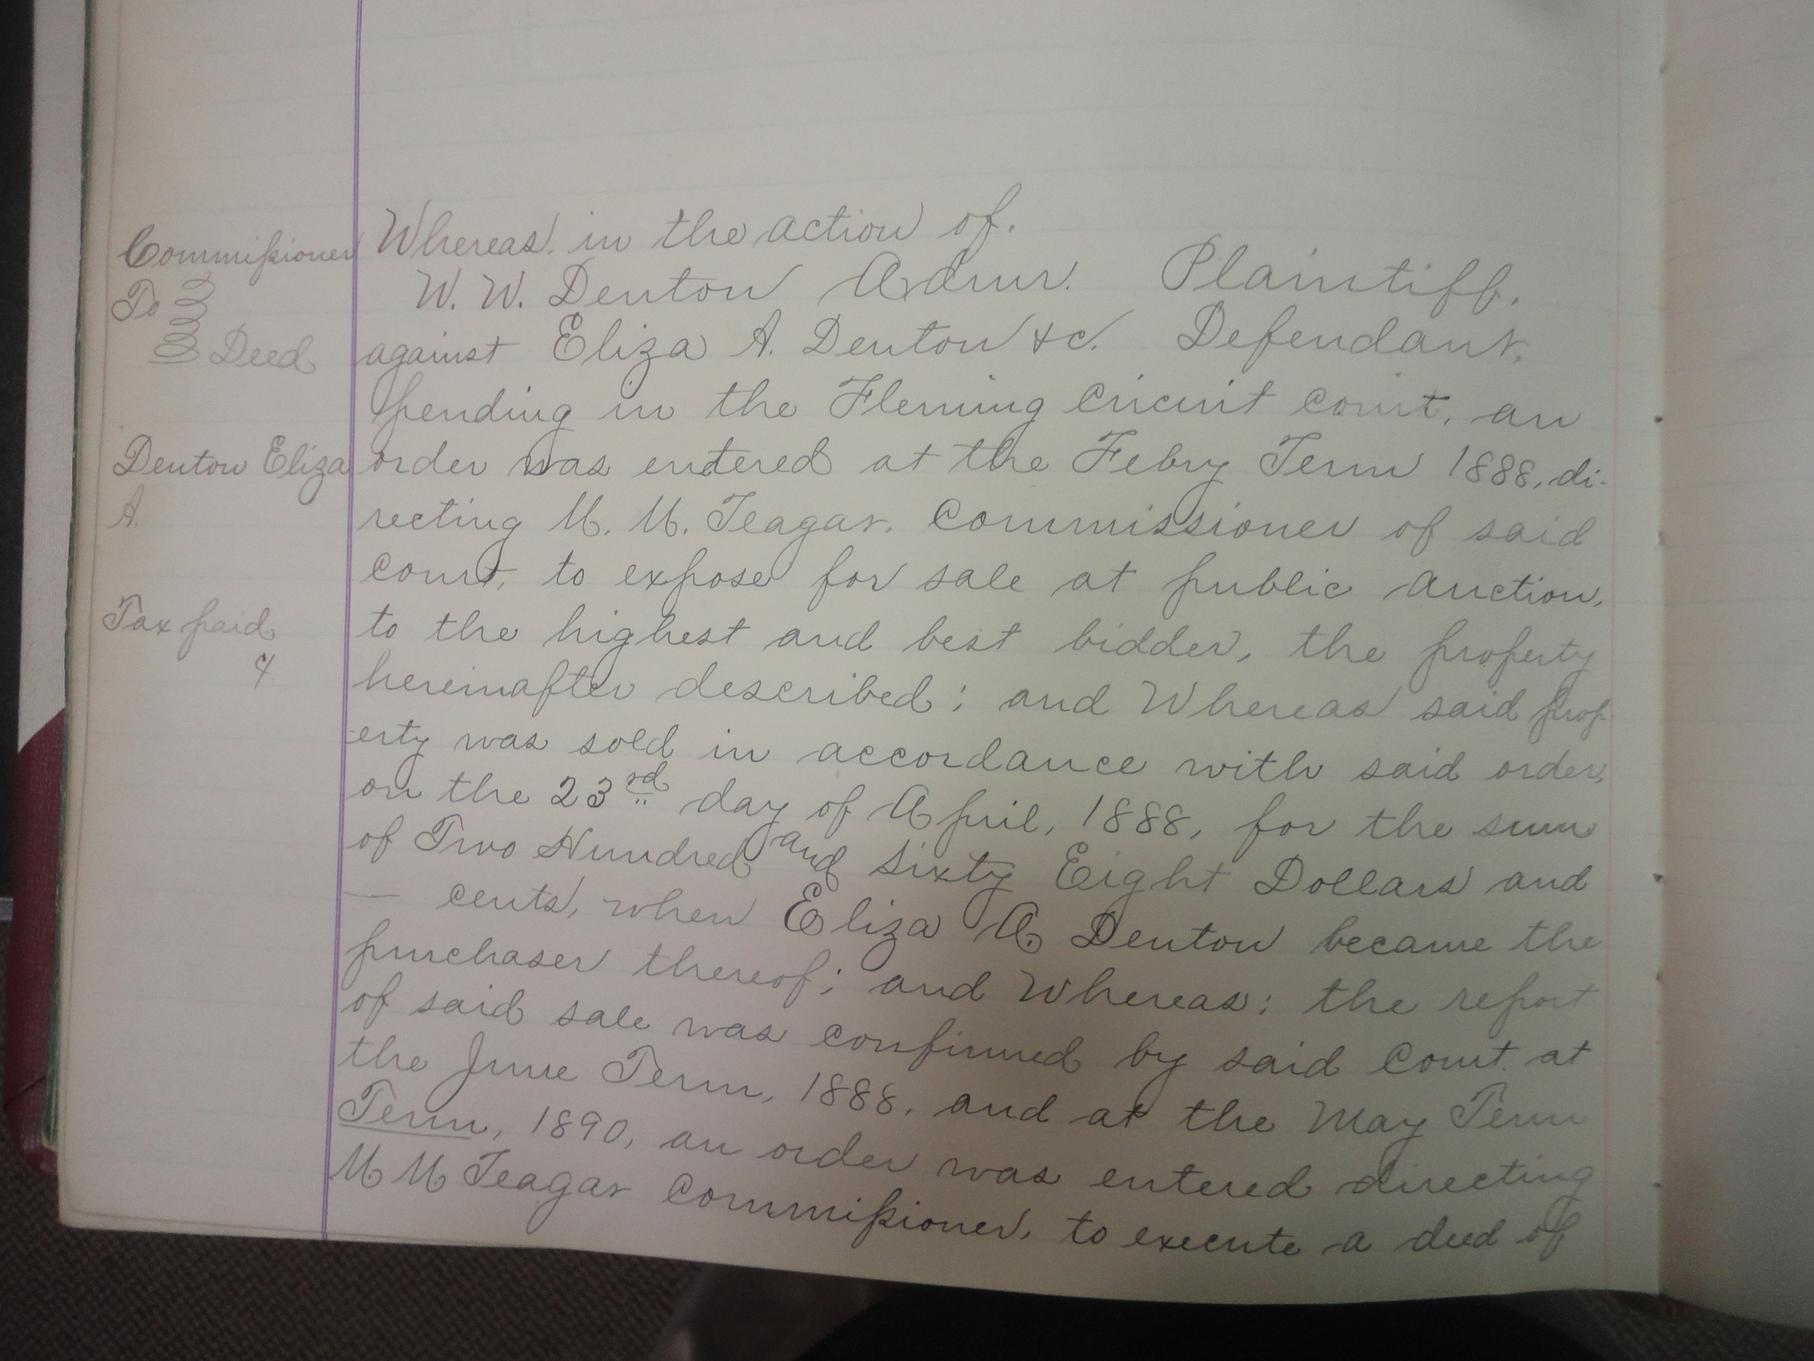 Commissioner
To
Deed
Denton Eliza
A.
Tax paid
Whereas in the action of.
W. W. Denton Admr. Plaintiff.
against Eliza A. Denton &c. Defendant.
pending in the Fleming Circuit Court, an
order was entered at the Febry Term 1888, di-
recting M. M. Teagar. Commissioner of said
Court, to expose for sale at public auction,
to the highest and best bidder, the property
hereinafter described; and Whereas said prop-
erty was sold in accordance with said order,
on the 23rd day of April, 1888, for the sum
of Two Hundred and Sixty Eight Dollars and
— cents, when Eliza A. Denton became the
purchaser thereof; and Whereas; the report
of said sale was confirmed by said Court at
the June Term, 1888, and at the May Term
Term, 1890, an order was entered directing
M M Teagar Commissioner, to execute a deed of